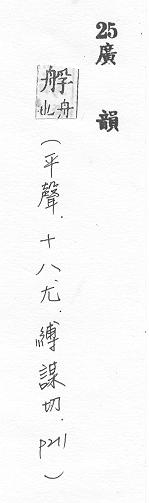 25廣韻
艀
舟也
（平聲．十八尤．縛謀切．P211）